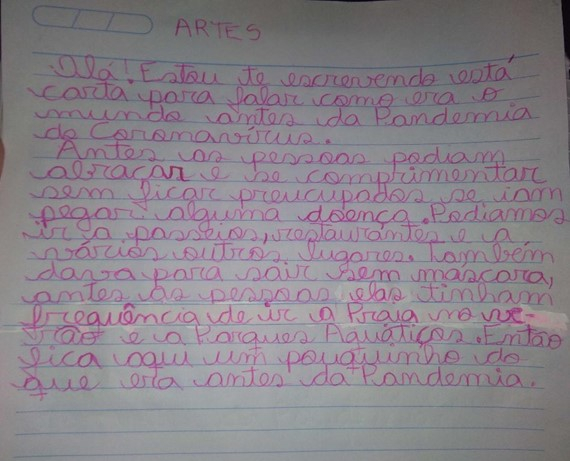 ARTES
Olá! Estou te escrevendo está
carta para falar como era o
mundo antes da Pandemia
do Coronavírus.
Antes as pessoas podiam
abraçar e se comprimentar
sem ficar preucupados se iam
pegar alguma doença. Podiamos
ir a passeios, restaurantes e a
vários outros lugares. Também
dava para sair sem mascara,
antes as pessoas elas tinham
frequência de ir a Praia no ve-
rão e a Parques Aquáticos. Então
fica aqui um pouquinho do
que era antes da Pandemia.